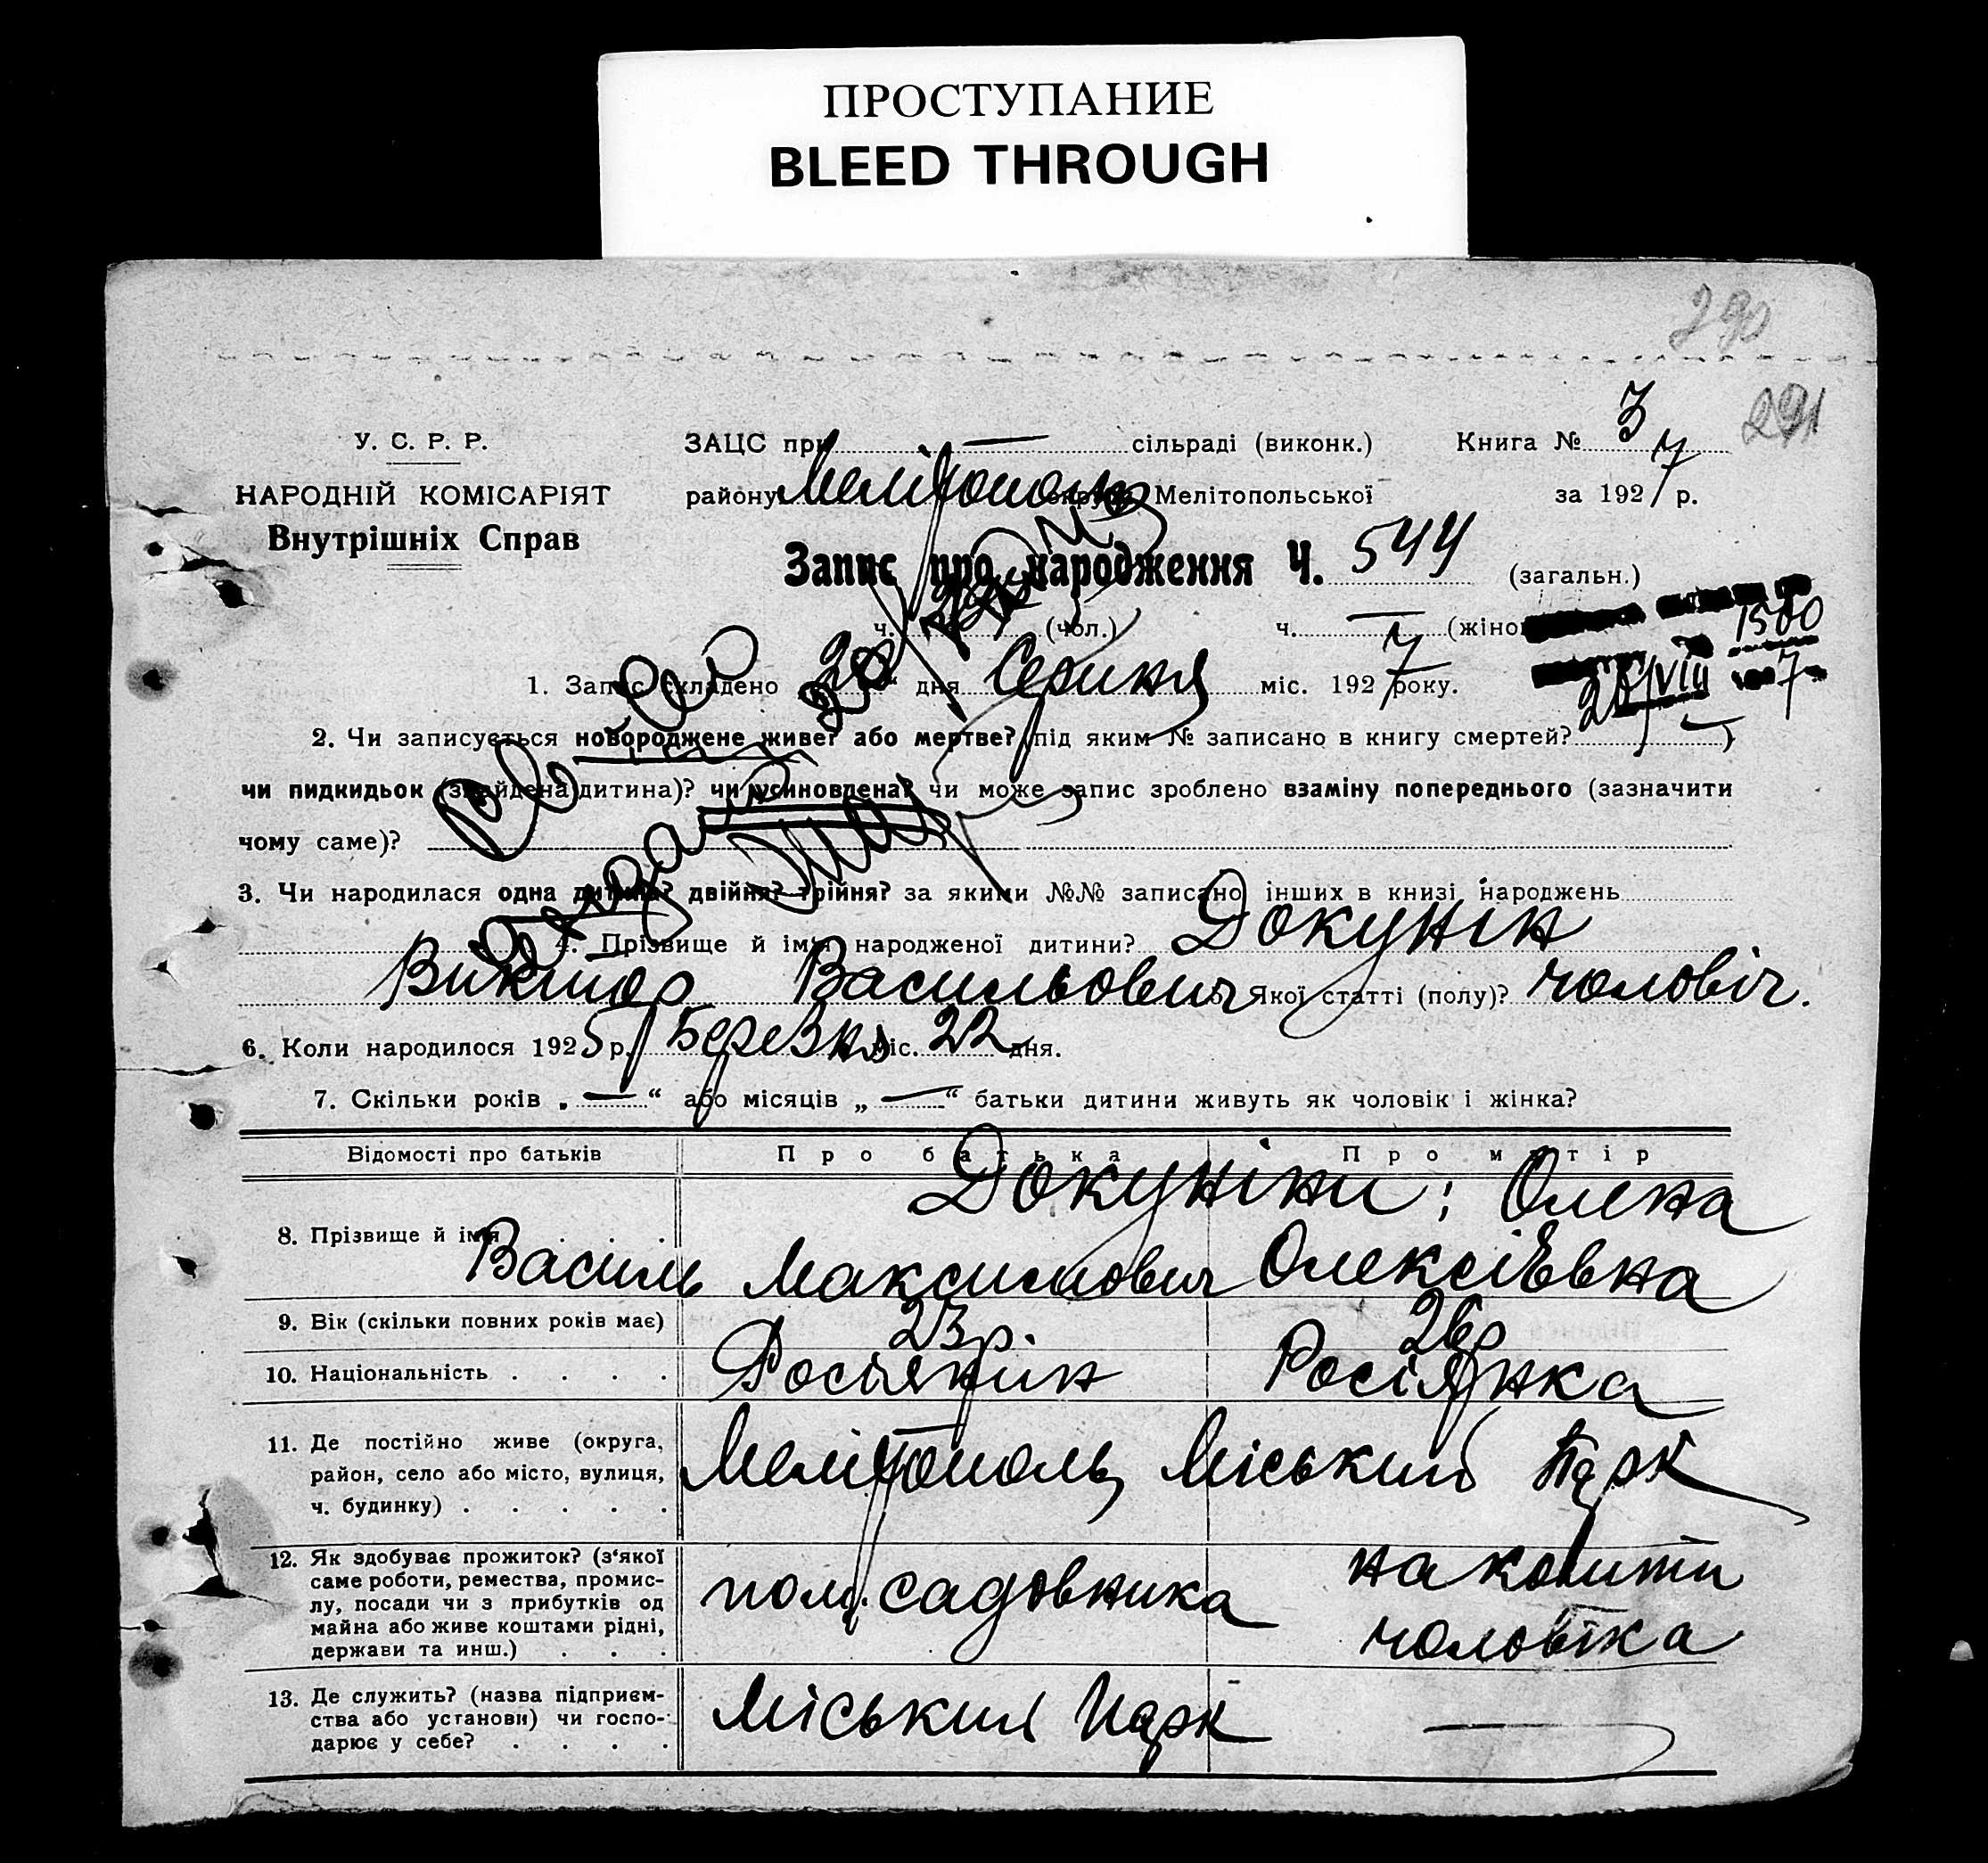 ПРОСТУПАНИЕ
BLEED THROUGH
290
291
У. С. Р. Р.
НАРОДНІЙ КОМІСАРІЯТ
Внутрішніх Справ
ЗАЦС при — сільраді (виконк.)
Книга № 3
району Мелітополь округи Мелітопольської
за 1927 р.
Запис про народження Ч. 544 (загальн.)
ч. (чол.) ч. — (жіноч
1500
1. Запис складено „20“ дня Серпня міс. 1927 року.
2. Чи записується новороджене живе? або мертве? (під яким № записано в книгу смертей? —)
чи пидкидьок (знайдена дитина)? чи усиновлена? чи може запис зроблено взаміну попереднього (зазначити
чому саме)?
3. Чи народилася одна дитина? двійня? трійня? за якими №№ записано інших в книзі народжень
4. Прізвище й імя народженої дитини? Докунін
Виктор Васильович 5. Якої статті (полу)? чоловіч.
6. Коли народилося 1925 р. Березня міс. 22 дня.
7. Скільки років „—“ або місяців „—“ батьки дитини живуть як чоловік і жінка?
Відомості про батьків
Про батька
Про матір
8. Прізвище й імя
Докуніни; Олена
Василь Максимович Олексіевна
9. Вік (скільки повних років має)
23 р.
26 р
10. Національність . . . .
Росіянин
Росіянка
11. Де постійно живе (округа,
район, село або місто, вулиця,
ч. будинку) . . . . .
Мелітополь Міський Парк
12. Як здобуває прожиток? (з'якої
саме роботи, ремества, промис-
лу, посади чи з прибутків од
майна або живе коштами рідні,
держави та инш.) . . .
пом. садовника
на кошти
чоловіка
13. Де служить? (назва підприєм-
ства або установи) чи госпо-
дарює у себе? . . . .
Міський Парк
—